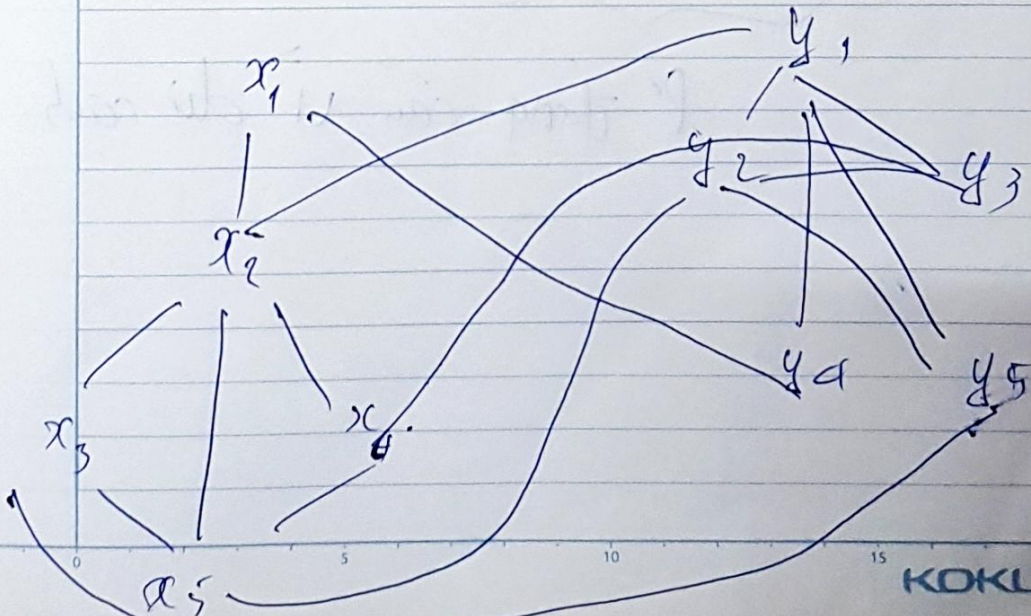 x1 y1
y2 y3
x2
y4 y5
x3 x4
x5
0 5 10 15